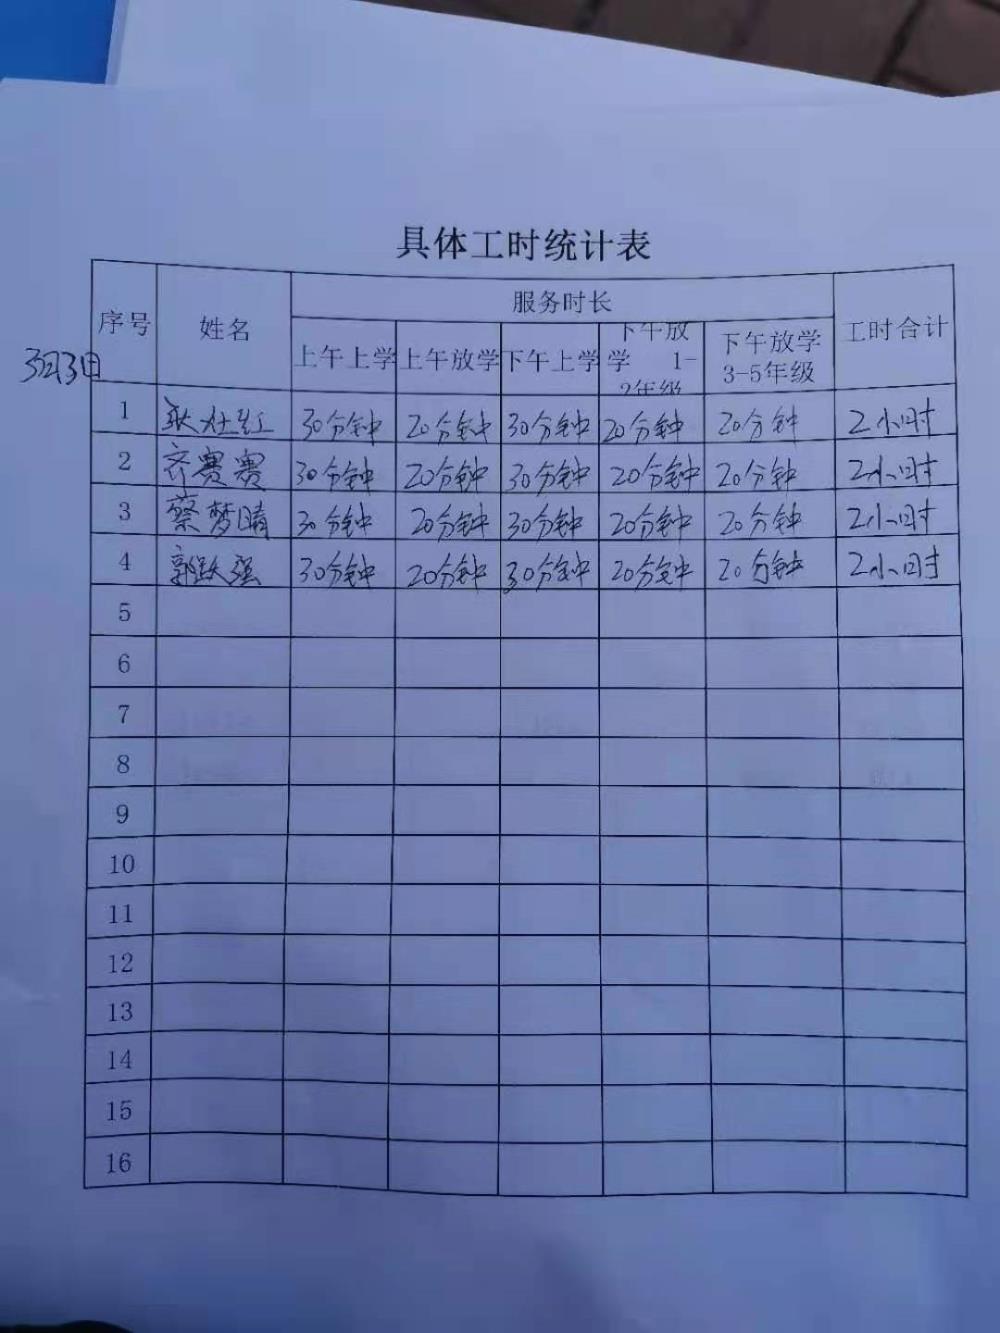 具体工时统计表
序号 姓名 服务时长 工时合计
上午上学 上午放学 下午上学 下午放学 1-2年级 下午放学 3-5年级
3月3日
1 耿灶红 30分钟 20分钟 30分钟 20分钟 20分钟 2小时
2 齐赛赛 30分钟 20分钟 30分钟 20分钟 20分钟 2小时
3 蔡梦晴 30分钟 20分钟 30分钟 20分钟 20分钟 2小时
4 郭跃强 30分钟 20分钟 30分钟 20分钟 20分钟 2小时
5
6
7
8
9
10
11
12
13
14
15
16